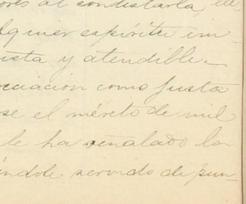 al contestarla, de
lquier espíritu im-
usta y atendible.
cuacion como justa
se el mérito de mil
le ha señalado la
éndole servido de pun-